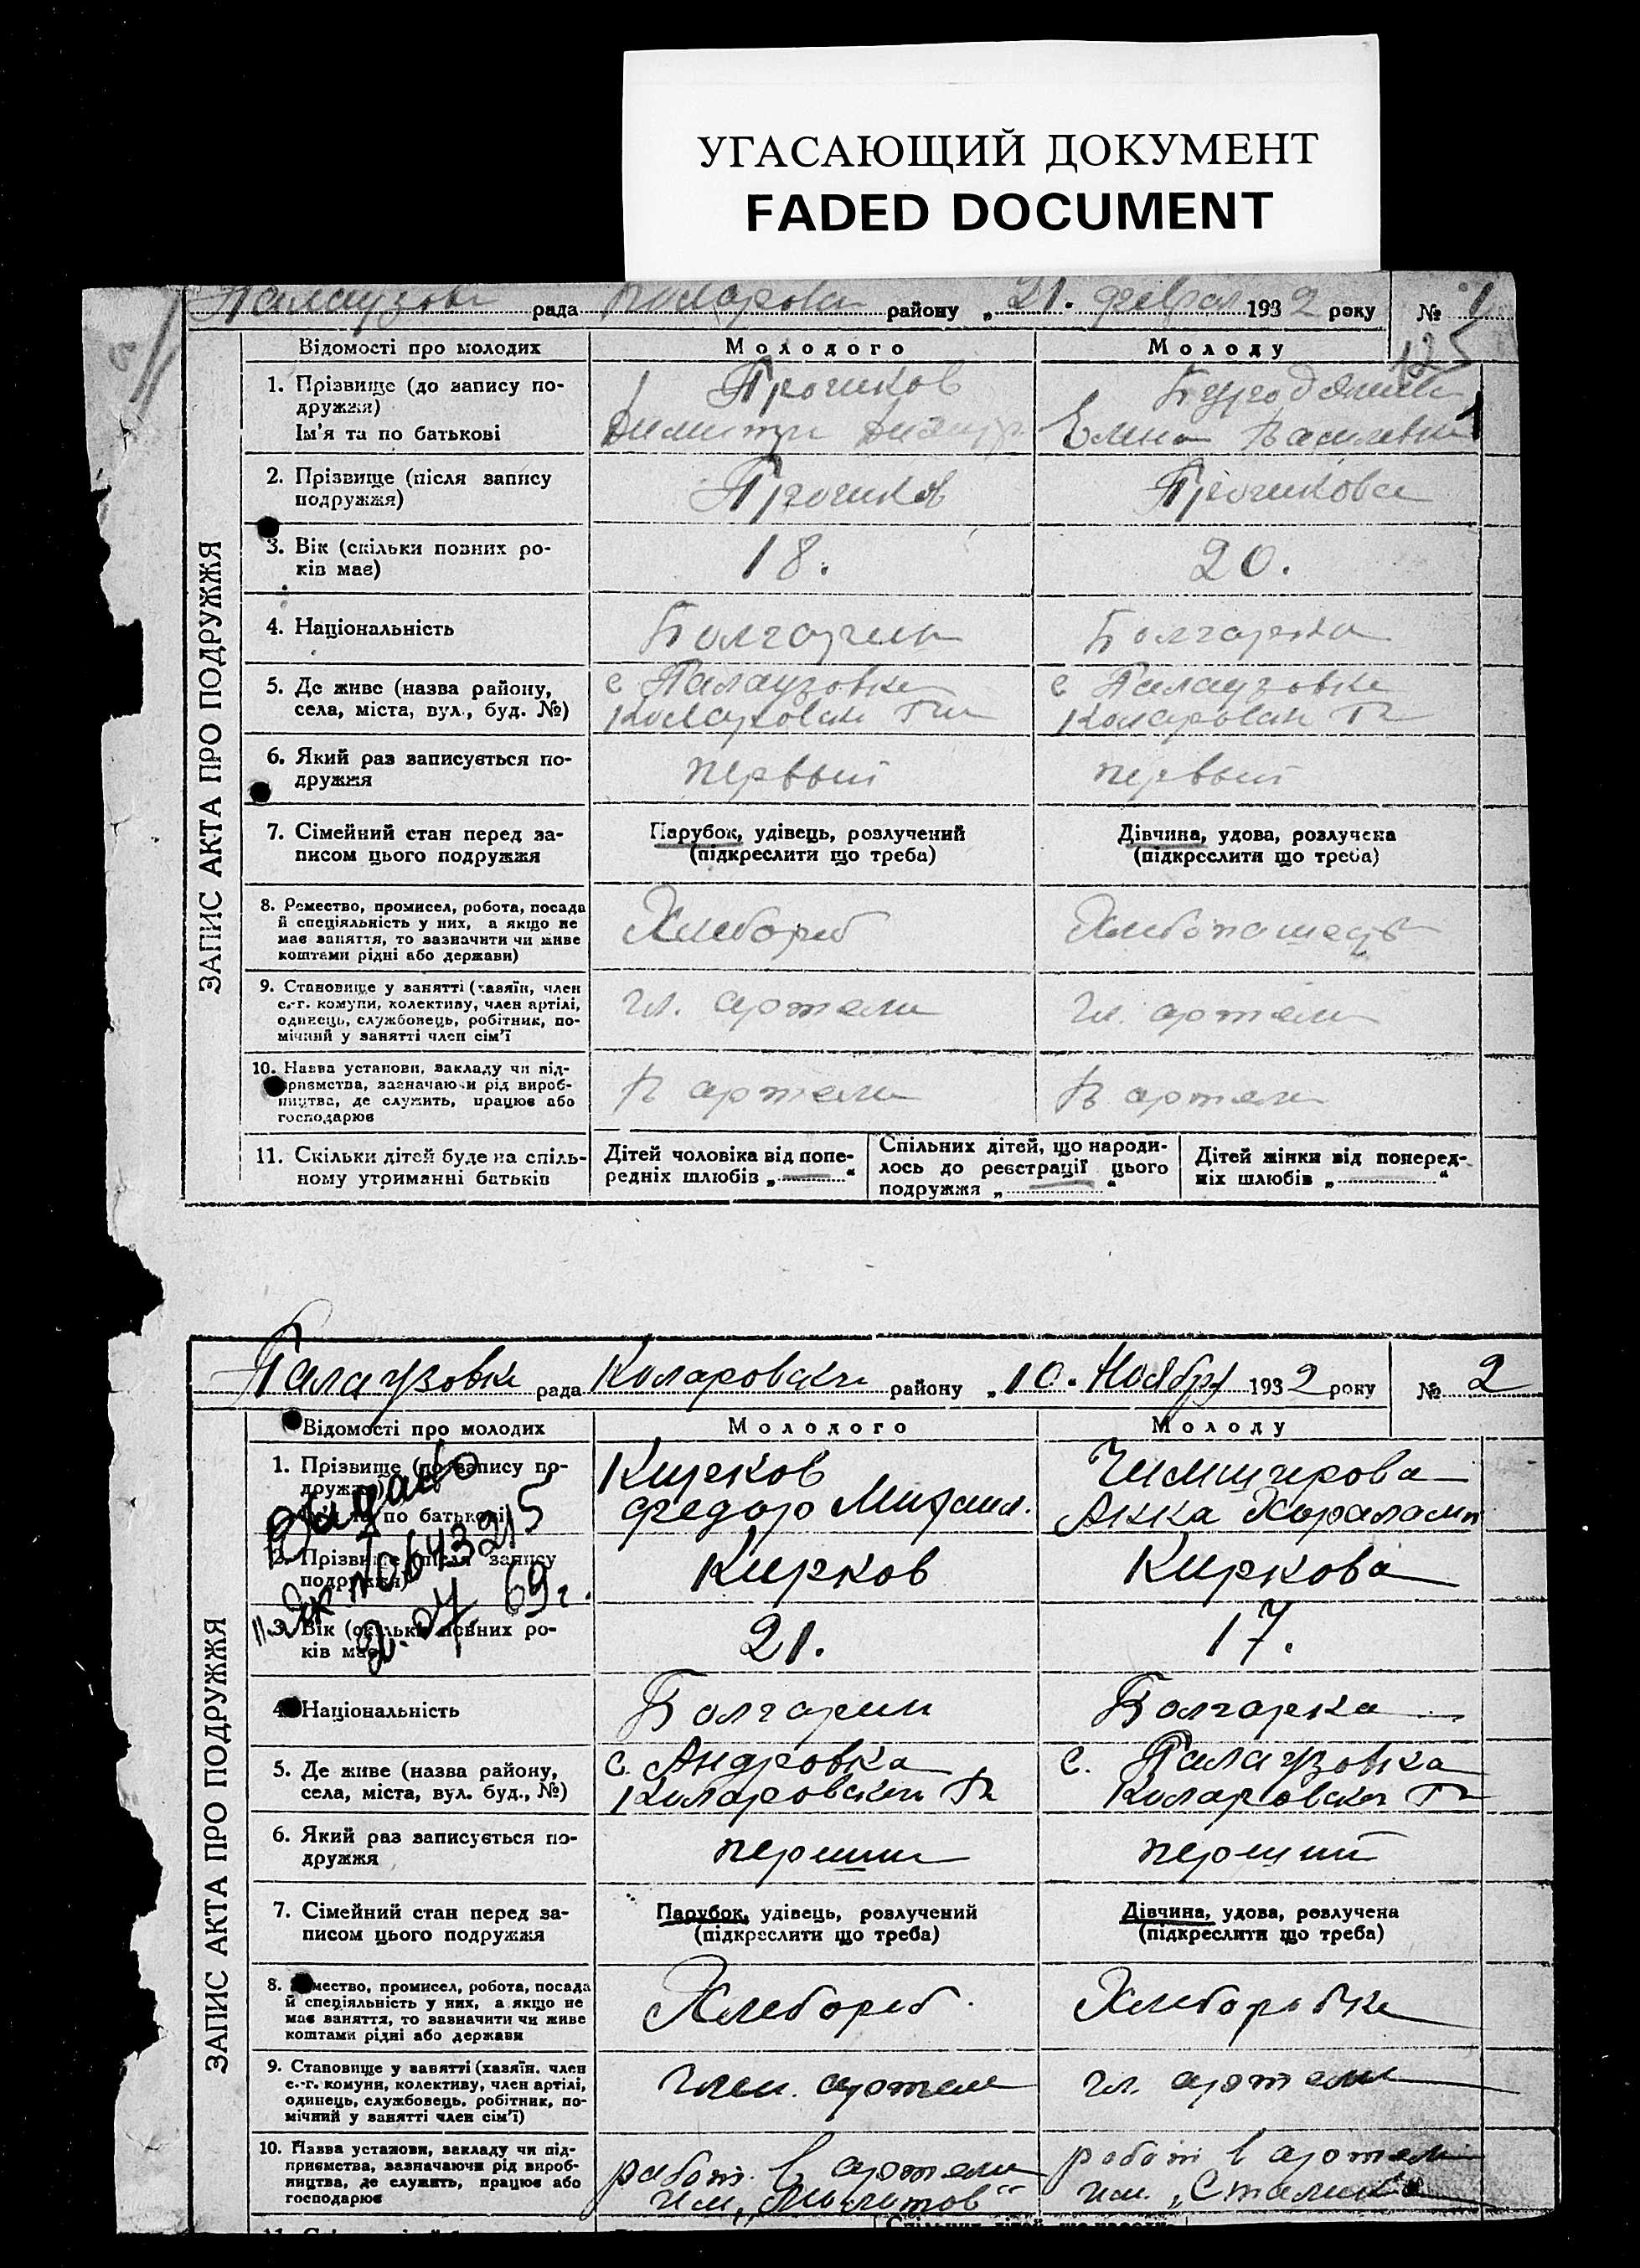 УГАСАЮЩИЙ ДОКУМЕНТ
FADED DOCUMENT
рада району „21. 1932 року № 1
125
ЗАПИС АКТА ПРО ПОДРУЖЖЯ
Відомості про молодих Молодого Молоду
1. Прізвище (до запису по-
дружжя)
Ім'я та по батькові
Елена Василевна
2. Прізвище (після запису
подружжя)
3. Вік (скільки повних ро-
ків має)
18. 20.
4. Національність
Болгарин Болгарка
5. Де живе (назва району,
села, міста, вул., буд. №)
с Палаузовка с Палаузовка
6. Який раз записується по-
дружжя
первый первый
7. Сімейний стан перед за-
писом цього подружжя
Парубок, удівець, розлучений
(підкреслити що треба)
Дівчина, удова, розлучена
(підкреслити що треба)
8. Ремество, промисел, робота, посада
й спеціяльність у них, а якщо не
має заняття, то зазначити чи живе
коштами рідні або держави)
Хлебороб
9. Становище у занятті (хазяїн, член
с.-г. комуни, колективу, член артілі,
одинець, службовець, робітник, по-
мічний у занятті член сім'ї
чл. артели чл. артели
10. Назва установи, закладу чи під-
приємства, зазначаючи рід вироб-
ництва, де служить, працює або
господарює
В артели В артели
11. Скільки дітей буде на спіль-
ному утриманні батьків
Дітей чоловіка від попе-
редніх шлюбів „ “
Спільних дітей, що народи-
лось до реєстрації цього
подружжя „ “
Дітей жінки від поперед-
ніх шлюбів „ “
Палаузовка рада району „10. Ноября 1932 року № 2
ЗАПИС АКТА ПРО ПОДРУЖЖЯ
Відомості про молодих Молодого Молоду
1. Прізвище (до запису по-
дружжя)
по батькові
Кирков
Федор Михаил. Анна
2. Прізвище (після запису
подружжя)
Кирков Киркова
3. Вік (скільки повних ро-
ків має)
21. 17.
69г.
4. Національність
Болгарин Болгарка
5. Де живе (назва району,
села, міста, вул. буд., №)
с. Андровка с. Палаузовка
6. Який раз записується по-
дружжя
7. Сімейний стан перед за-
писом цього подружжя
Парубок, удівець, розлучений
(підкреслити що треба)
Дівчина, удова, розлучена
(підкреслити що треба)
8. Ремество, промисел, робота, посада
й спеціяльність у них, а якщо не
має заняття, то зазначити чи живе
коштами рідні або держави
Хлебороб. Хлеборобка
9. Становище у занятті (хазяїн, член
с.-г. комуни, колективу, член артілі,
одинець, службовець, робітник, по-
мічний у занятті член сім'ї)
Член. артели чл. артели
10. Назва установи, закладу чи під-
приємства, зазначаючи рід вироб-
ництва, де служить, працює або
господарює
работ. в артели работ в артели
им. им. „Сталина“